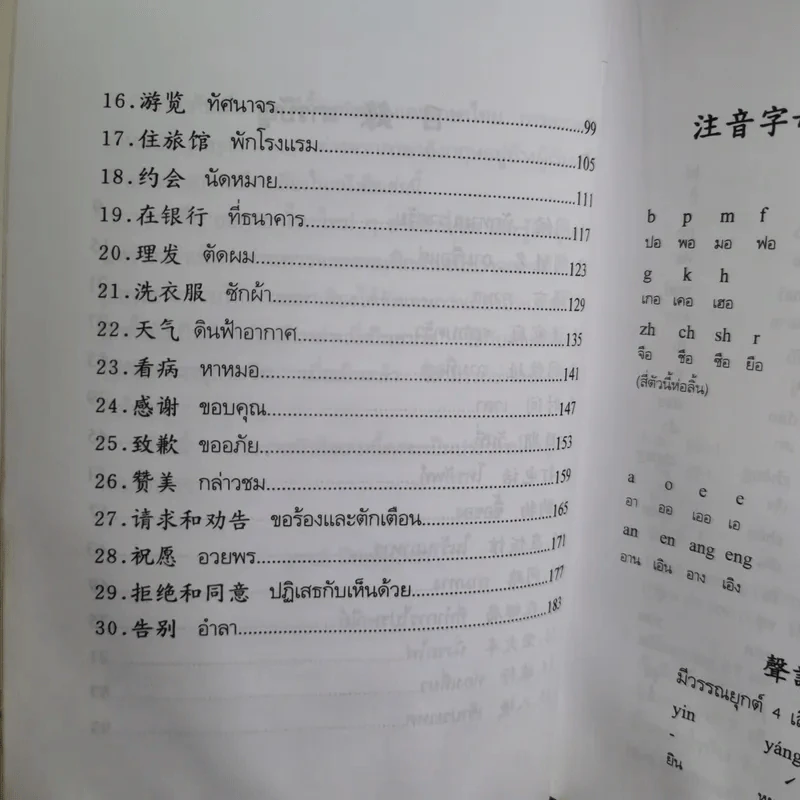 16.游览 ทัศนาจร....................99
17.住旅馆 พักโรงแรม....................105
18.约会 นัดหมาย....................111
19.在银行 ที่ธนาคาร....................117
20.理发 ตัดผม....................123
21.洗衣服 ซักผ้า....................129
22.天气 ดินฟ้าอากาศ....................135
23.看病 หาหมอ....................141
24.感谢 ขอบคุณ....................147
25.致歉 ขออภัย....................153
26.赞美 กล่าวชม....................159
27.请求和劝告 ขอร้องและตักเตือน....................165
28.祝愿 อวยพร....................171
29.拒绝和同意 ปฏิเสธกับเห็นด้วย....................177
30.告别 อำลา....................183
注音字
b p m f
ปอ พอ มอ ฟอ
g k h
เกอ เคอ เฮอ
zh ch sh r
จือ ชือ ซือ ยือ
(สี่ตัวนี้ห่อลิ้น)
a o e e
อา ออ เออ เอ
an en ang eng
อาน เอิน อาง เอิง
聲
มีวรรณยุกต์ 4
yin yáng
-
ยิน